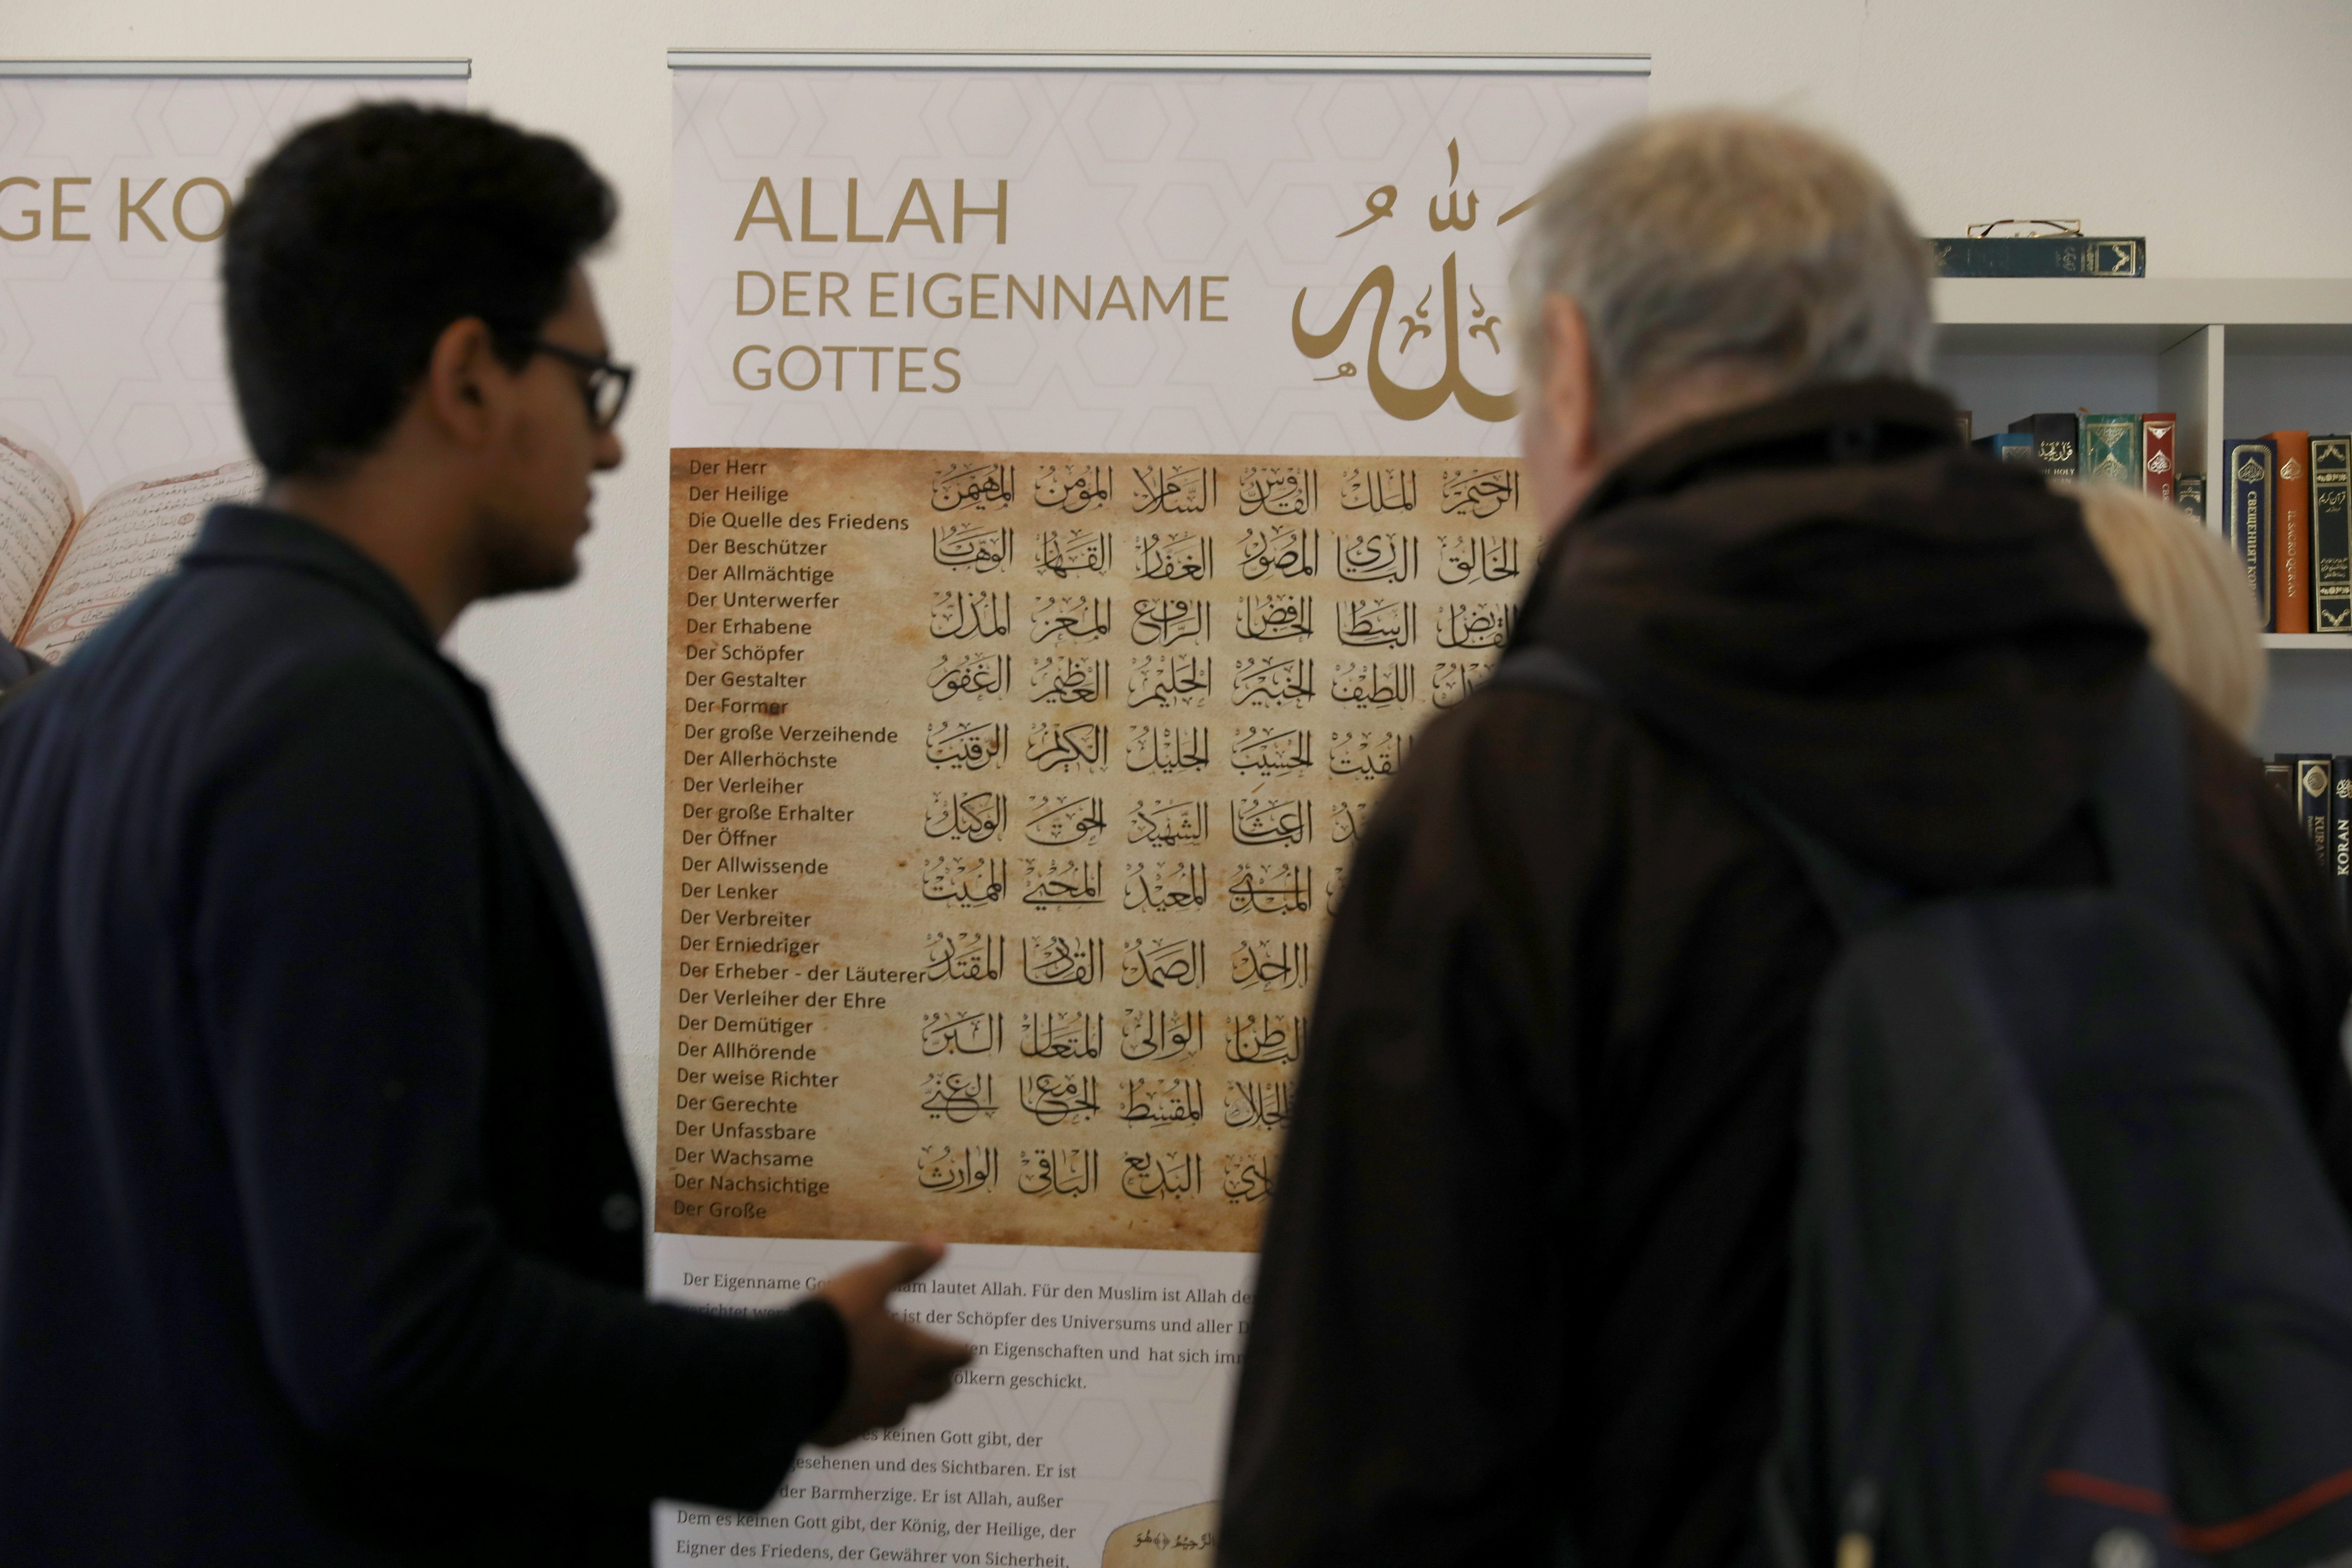 GE KO
ALLAH
DER EIGENNAME
GOTTES
الله
Der Herr
Der Heilige
Die Quelle des Friedens
Der Beschützer
Der Allmächtige
Der Unterwerfer
Der Erhabene
Der Schöpfer
Der Gestalter
Der Former
Der große Verzeihende
Der Allerhöchste
Der Verleiher
Der große Erhalter
Der Öffner
Der Allwissende
Der Lenker
Der Verbreiter
Der Erniedriger
Der Erheber - der Läuterer
Der Verleiher der Ehre
Der Demütiger
Der Allhörende
Der weise Richter
Der Gerechte
Der Unfassbare
Der Wachsame
Der Nachsichtige
Der Große
الرحيم الملك القدوس السلام المؤمن المهيمن
الخالق البارئ المصور الغفار القهار الوهاب
القابض الباسط الخافض الرافع المعز المذل
اللطيف الخبير الحليم العظيم الغفور
المقيت الحسيب الجليل الكريم الرقيب
الباعث الشهيد الحق الوكيل
المبدئ المعيد المحيي المميت
الاحد الصمد القادر المقتدر
الباطن الوالي المتعال البر
المقسط الجامع الغني
البديع الباقي الوارث
Der Eigenname lautet Allah. Für den Muslim ist Allah
ist der Schöpfer des Universums und aller
Eigenschaften und hat sich
geschickt.
es keinen Gott gibt, der
und des Sichtbaren. Er ist
der Barmherzige. Er ist Allah, außer
Dem es keinen Gott gibt, der König, der Heilige, der
Eigner des Friedens, der Gewährer von Sicherheit,
СВЕЩЕНИЯТ КОР
IL SACRO QUR'AN
KUR'AN
KORAN